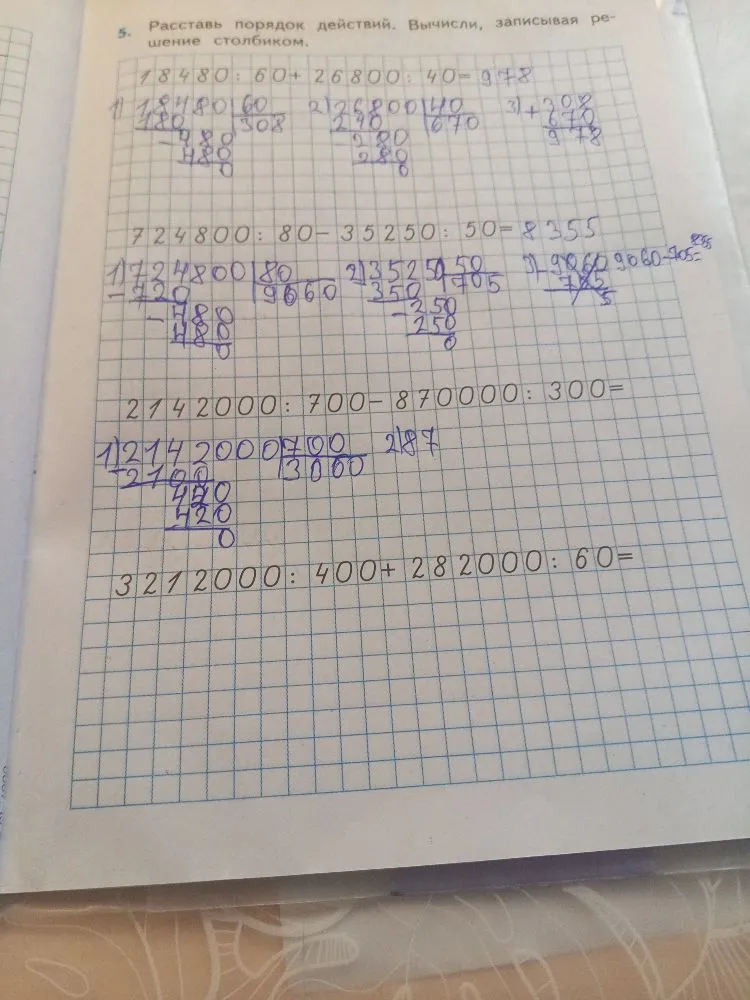 5. Расставь порядок действий. Вычисли, записывая ре-
шение столбиком.
18480 : 60 + 26800 : 40 = 978
1) 18480 60 2) 26800 40 3) + 308
180 308 240 670 670
- 480 - 280 978
480 280
0 0
724800 : 80 - 35250 : 50 = 8355
1) 724800 80 2) 35250 50 3) - 9060 9060-705=
- 720 9060 350 705
- 480 - 250 5
480 250
0 0
2142000 : 700 - 870000 : 300 =
1) 2142000 700 2) 87
- 2100 3060
420
420
0
3212000 : 400 + 282000 : 60 =